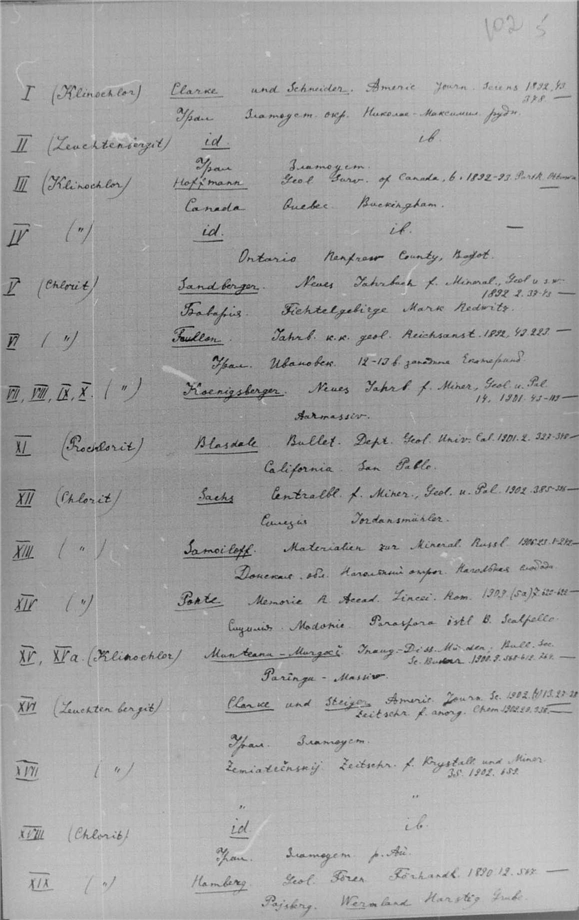 102
I (Klinochlor) Clarke und Schneider. Americ Journ. Sciens 1892.43.
378 —
Урал Златоуст. окр. Николае-Максимил. рудн.
II (Leuchtenbergit) id. ib.
Урал Златоуст.
III (Klinochlor) Hoffmann Geol Surv. of Canada, 6. 1892-93. Part R. Ottawa
Canada Quebec Buckingham.
IV (") id. ib. —
Ontario Renfrew County, Bagot.
V (Chlorit) Sandberger. Neues Jahrbuch f. Mineral., Geol u s w
1892. 2. 37-43 —
Бавария Fichtelgebirge Mark Redwitz.
VI (") Foullon. Jahrb. k. k. geol. Reichsanst. 1892, 42. 223 —
Урал. Ивановск. 12-13 в. западнѣ Екатеринб.
VII, VIII, IX, X. (") Koenigsberger. Neues Jahrb f. Miner, Geol. u. Pal
14. 1901. 43-119 —
Aarmassiv.
XI (Prochlorit) Blasdale. Bullet. Dept. Geol. Univ. Cal. 1901. 2. 327- —
California San Pablo.
XII (Chlorit) Sachs Centralbl. f. Miner., Geol. u. Pal. 1902. 385- —
Силезия Jordansmühler.
XIII (") Samoiloff. Materialien zur Mineral. Russl 1906. 23. 1- —
Донская обл. Нагольный Нагольная слобода.
XIV (") Ponte. Memorie R. Accad Lincei. Rom. 1909 (5a)
Сицилия. Madonie Parasfora
XV, XVa. (Klinochlor) Munteanu-Murgoci. Inaug-Diss. München; Bull. Soc.
Sc. 1900. 9. —
Parîngu-Massiv.
XVI (Leuchtenbergit) Clarke und Steiger Americ. Journ Sc. 1902. (4) 13. 27-38
Zeitschr f. anorg. Chem. 1902. 29. 338. —
Урал. Златоуст.
XVII (") Zemiatčinskij Zeitschr. f. Krystall. und Miner
35. 1902. —
" "
XVIII (Chlorit) id. ib.
Урал. Златоуст р. Ай.
XIX (") Hamberg. Geol. Fören Förhandl. 1890. 12. —
Pajsberg. Wermland Harstig Grube.